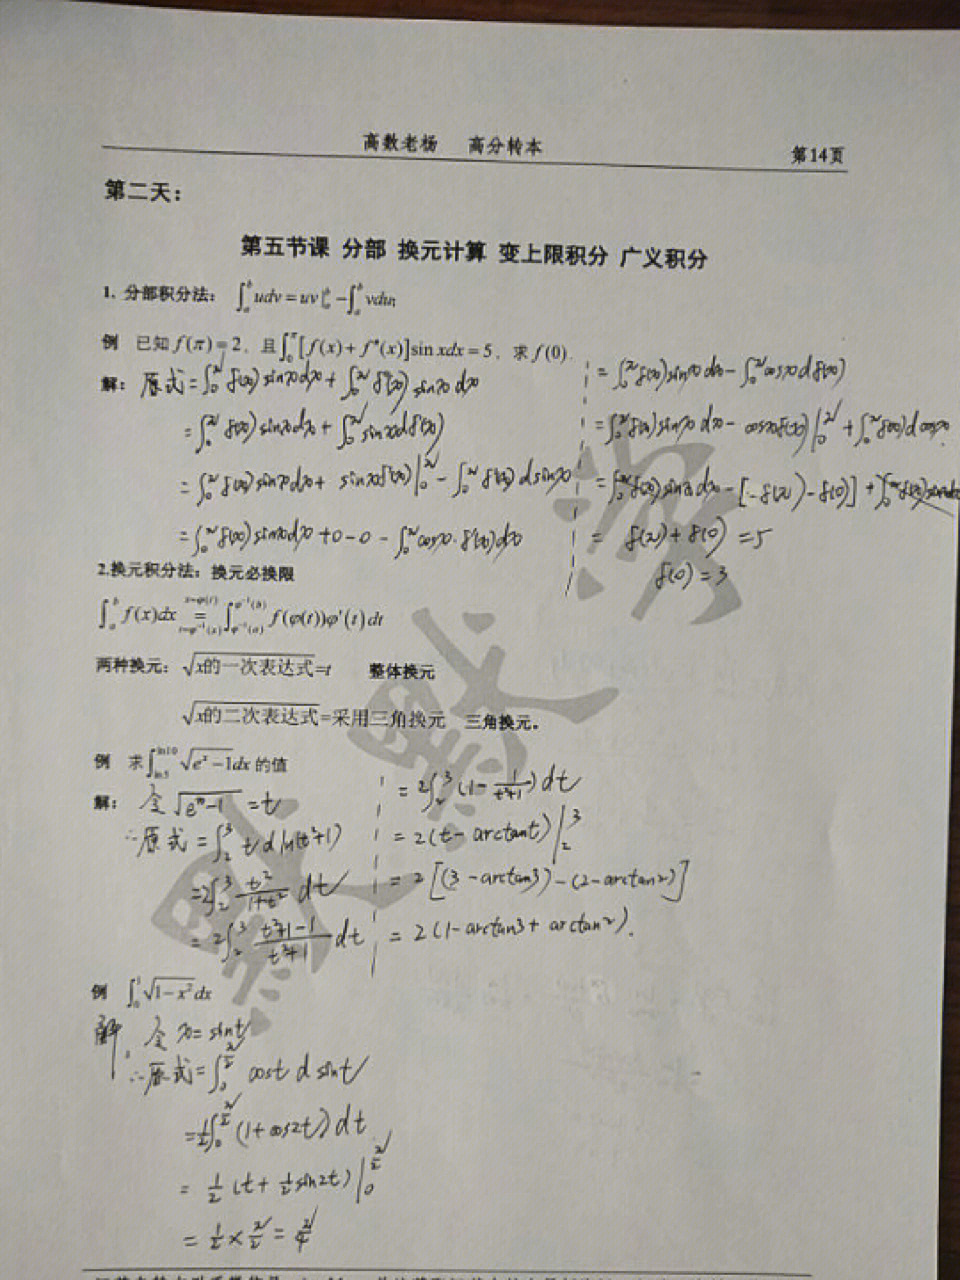 高数老杨 高分转本
第14页
第二天：
第五节课 分部 换元计算 变上限积分 广义积分
1. 分部积分法： ∫_a^b udv = uv|_a^b − ∫_a^b vdu;
例 已知 f(π) = 2, 且 ∫_0^π [f(x) + f''(x)] sin xdx = 5, 求 f(0).
解: 原式 = ∫_0^π f(x) sinx dx + ∫_0^π f''(x) sinx dx
= ∫_0^π f(x) sinx dx + ∫_0^π sinx d f'(x)
= ∫_0^π f(x) sinx dx + sinx f'(x)|_0^π − ∫_0^π f'(x) d sinx
= ∫_0^π f(x) sinx dx + 0 − 0 − ∫_0^π cosx · f'(x) dx
= ∫_0^π f(x) sinx dx − ∫_0^π cosx d f(x)
= ∫_0^π f(x) sinx dx − cosx f(x)|_0^π + ∫_0^π f(x) d cosx
= ∫_0^π f(x) sinx dx − [−f(π) − f(0)] + ∫_0^π f(x) sinx dx
= f(π) + f(0) = 5
f(0) = 3
2.换元积分法：换元必换限
∫_a^b f(x)dx = ∫_{φ^{-1}(a)}^{φ^{-1}(b)} f(φ(t))φ'(t)dt
x=φ(t)
t=φ^{-1}(x)
两种换元： √x的一次表达式 = t 整体换元
√x的二次表达式 = 采用三角换元 三角换元。
例 求 ∫_{ln5}^{ln10} √(e^x − 1) dx 的值
解: 令 √(e^x − 1) = t
∴原式 = ∫_2^3 t d ln(t²+1)
= 2∫_2^3 t²/(1+t²) dt
= 2∫_2^3 (t²+1−1)/(t²+1) dt
= 2∫_2^3 (1 − 1/(t²+1)) dt
= 2(t − arctant)|_2^3
= 2[(3 − arctan3) − (2 − arctan2)]
= 2(1 − arctan3 + arctan2).
例 ∫_0^1 √(1−x²) dx
解, 令 x = sint
∴原式 = ∫_0^{π/2} cost d sint
= 1/2 ∫_0^{π/2} (1+cos2t) dt
= 1/2 (t + 1/2 sin2t)|_0^{π/2}
= 1/2 × π/2 = π/4